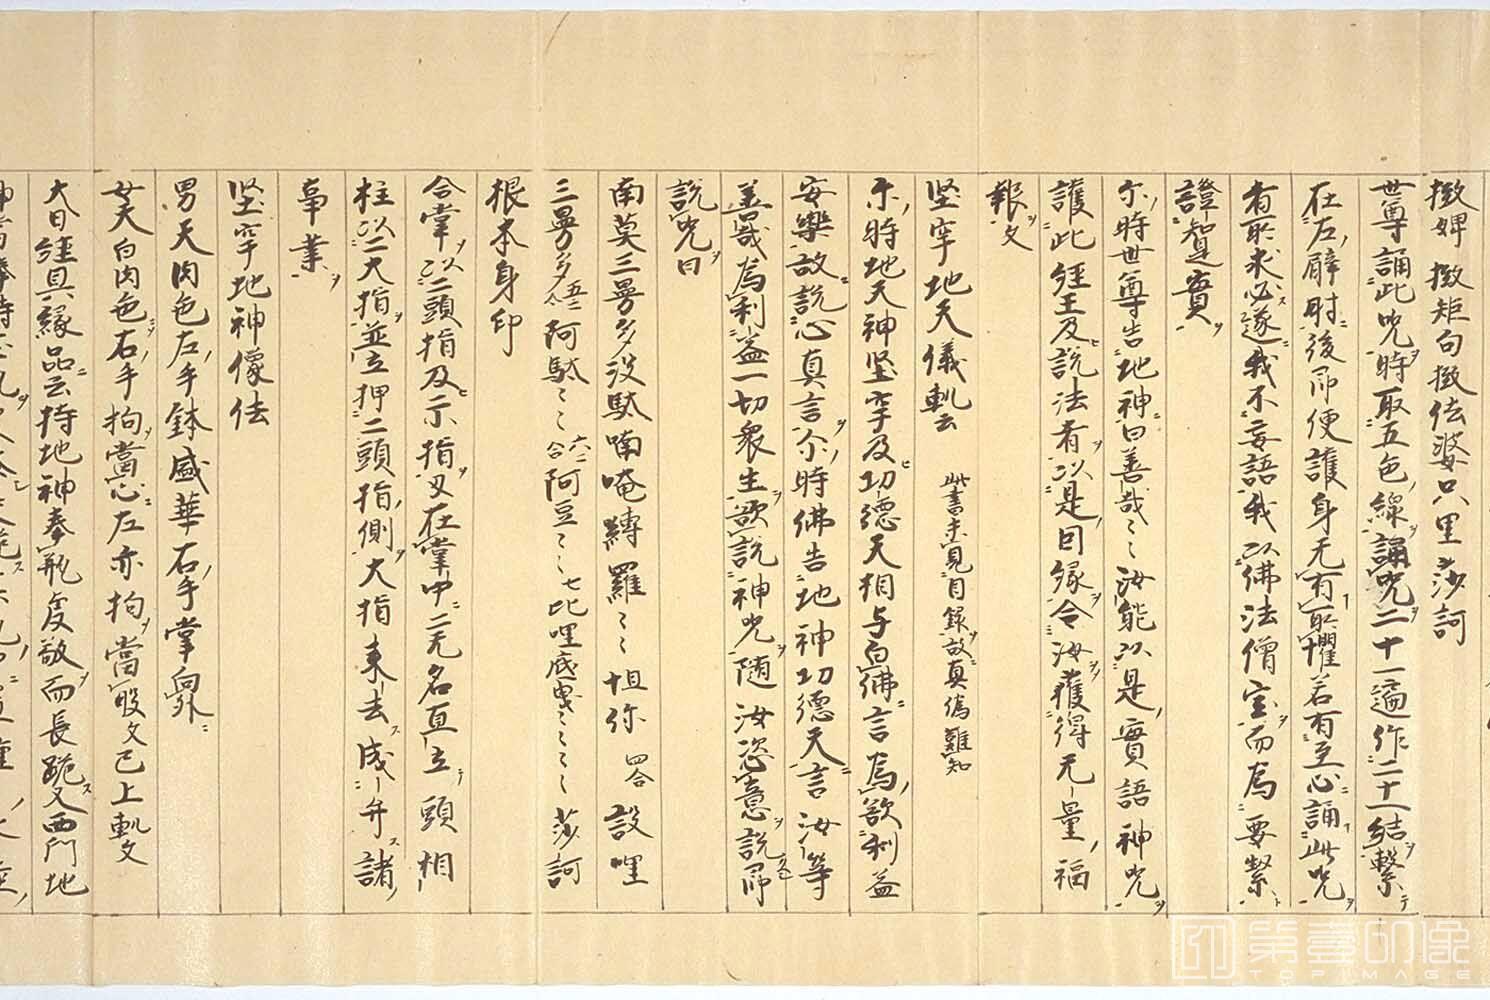 緻婢 緻矩句緻佉婆只里莎訶
世尊誦此呪時取五色線誦呪二十一遍作二十一結繋
在左臂肘後即便護身无有所懼若有至心誦此呪
者所求必遂我不妄語我以佛法僧宝而為要
證知是實
尒時世尊告地神曰善哉〻〻汝能以是實語神呪
護此経王及說法者以是因縁令汝獲得无量福
報文
堅牢地天儀軌云 此書未見目録故真偽難知
尒時地天神堅牢及功德天相与白佛言為欲利益
安樂故說心真言尒時佛告地神功德天言汝等
善哉為利益一切衆生欲說神呪随汝恣意說即
說呪曰
南莫三曼多没駄喃唵縛羅〻〻怛你 四合 設哩
三曼多 阿駄〻〻 阿豆〻〻 七 比哩底曳〻〻〻 莎訶
根本身印
合掌以二頭指及示指叉在掌中二无名直立頭相
柱以二大指並立押二頭指側大指来去成弁諸
事業
堅牢地神像法
男天肉色左手鉢盛華右手掌向外
女天白肉色右手拘當心左亦拘當股文已上軌文
大日経具縁品云持地神奉瓶虔敬而長跪又西門地